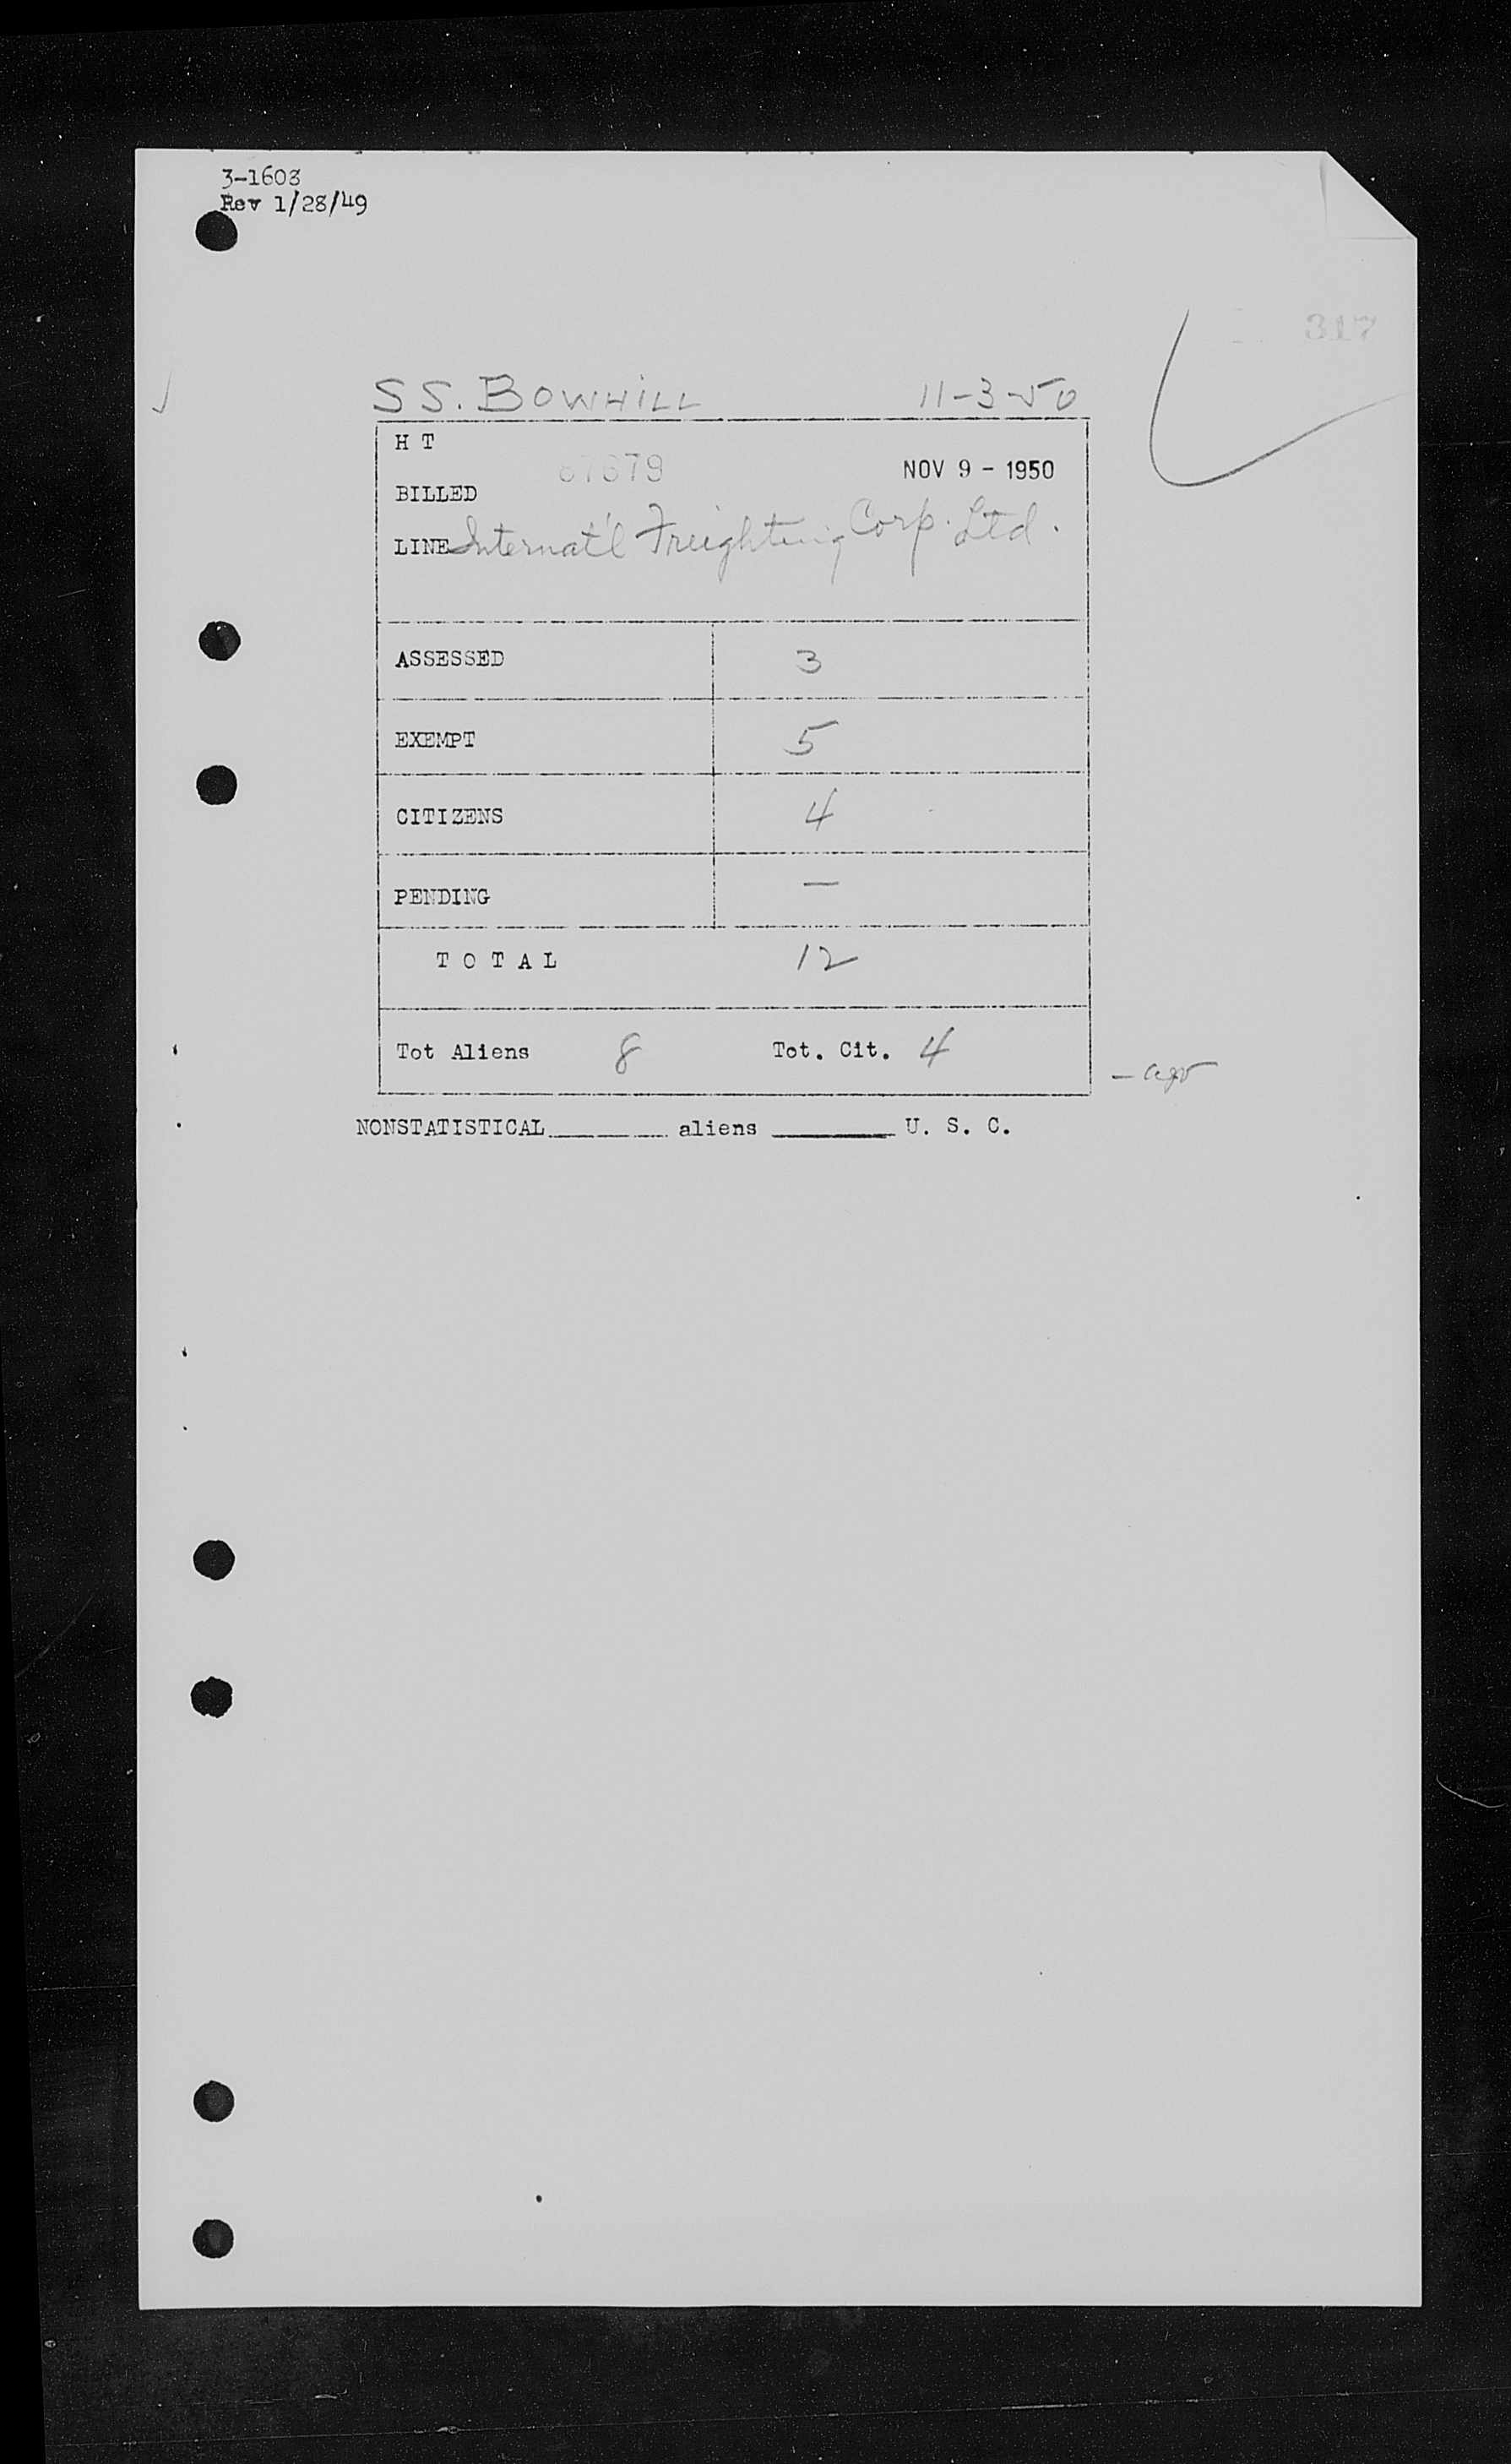 3-1603
Rev 1/28/49
317
SS. BOWHILL 11-3-50
H T
NOV 9 - 1950
BILLED
LINE Internat'l Freighting Corp. Ltd.
ASSESSED 3
EXEMPT 5
CITIZENS 4
PENDING —
TOTAL 12
Tot Aliens 8 Tot. Cit. 4
NONSTATISTICAL_______ aliens _______ U. S. C.